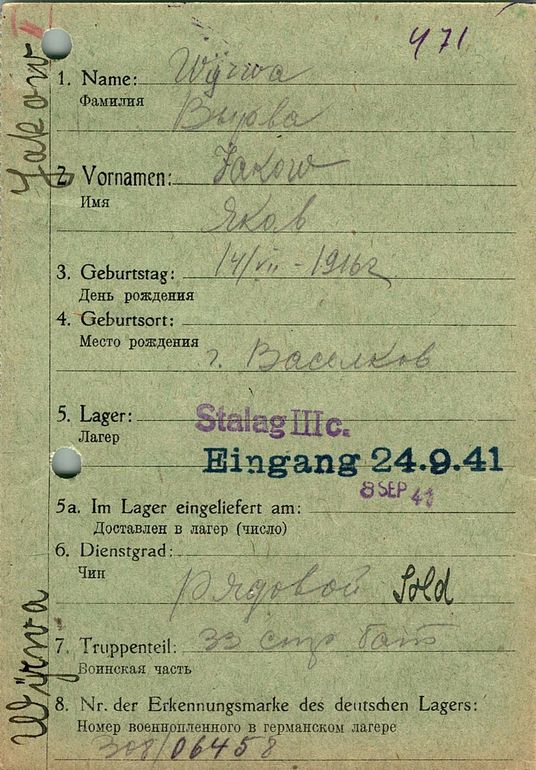 471
1. Name: Wÿrwa
Фамилия
Вырва
2. Vornamen: Jakow
Имя
Яков
3. Geburtstag: 14/VII - 1916 г
День рождения
4. Geburtsort:
Место рождения
г. Васелков
5. Lager: Stalag III c.
Лагерь
Eingang 24.9.41
8 SEP 41
5a. Im Lager eingeliefert am:
Доставлен в лагерь (число)
6. Dienstgrad:
Чин
рядовой Sold
7. Truppenteil: 33 стр бат
Воинская часть
8. Nr. der Erkennungsmarke des deutschen Lagers:
Номер военнопленного в германском лагере
308/06458
Wÿrwa Jakow